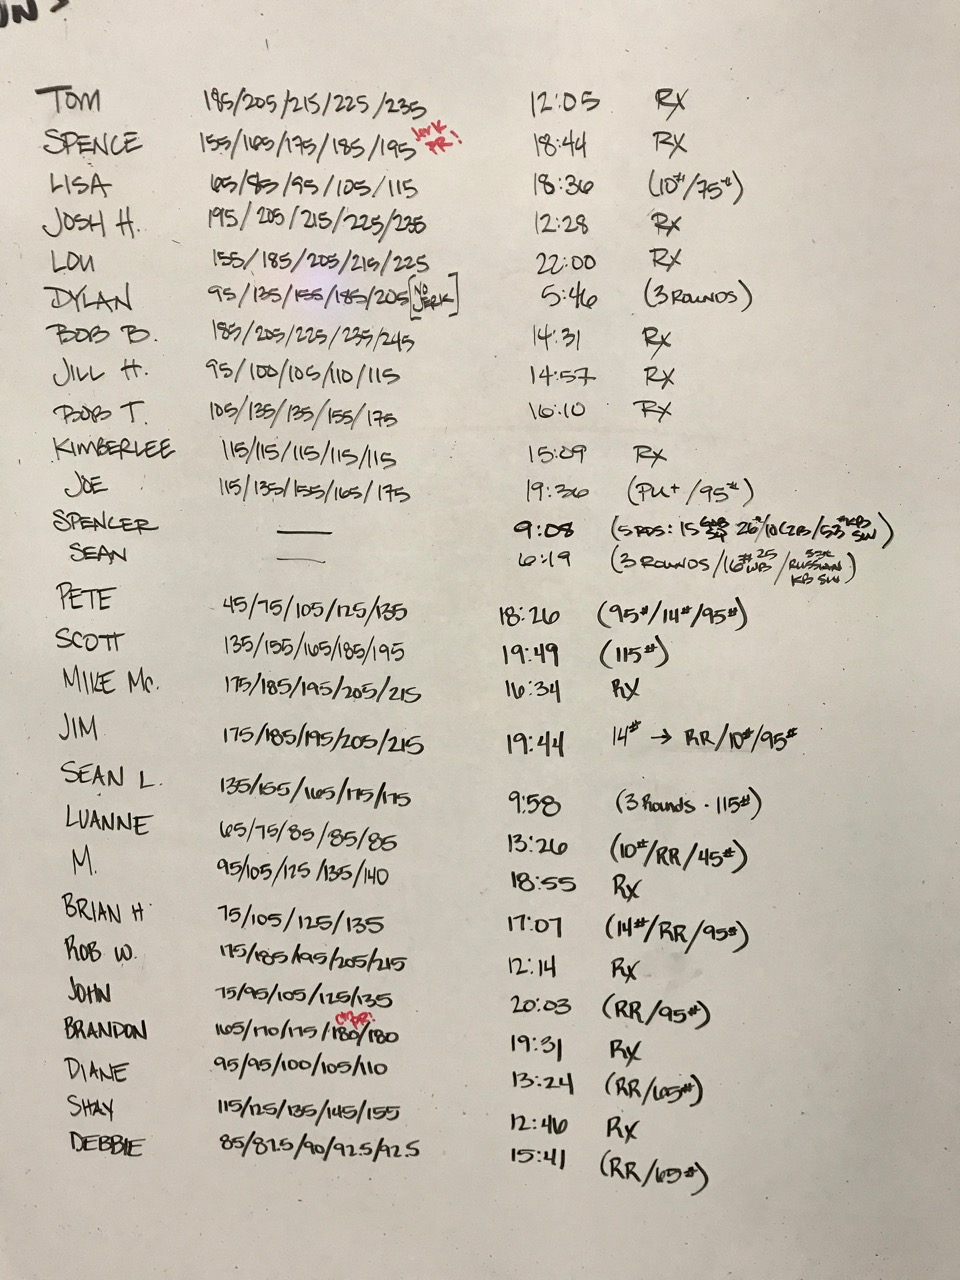 TOM 185/205/215/225/235 12:05 RX
SPENCE 155/165/175/185/195 Jerk PR! 18:44 RX
LISA 65/85/95/105/115 18:36 (10#/75#)
JOSH H. 195/205/215/225/235 12:28 RX
LOU 155/185/205/215/225 22:00 RX
DYLAN 95/135/155/185/205 [NO JERK] 5:46 (3 ROUNDS)
BOB B. 185/205/225/235/245 14:31 RX
JILL H. 95/100/105/110/115 14:57 RX
BOB T. 105/135/135/155/175 16:10 RX
KIMBERLEE 115/115/115/115/115 15:09 RX
JOE 115/135/155/165/175 19:36 (PU+/95#)
SPENCER — 9:08 (5 RDS: 15 SQ 26"/10 C2B/53# KB SW)
SEAN — 6:19 (3 ROUNDS/16# 25 WB/53# RUSSIAN KB SW)
PETE 45/75/105/125/135 18:26 (95#/14#/95#)
SCOTT 135/155/165/185/195 19:49 (115#)
MIKE Mc. 175/185/195/205/215 16:34 RX
JIM 175/185/195/205/215 19:44 14# → RR/10#/95#
SEAN L. 135/155/165/175/175 9:58 (3 Rounds - 115#)
LUANNE 65/75/85/85/85 13:26 (10#/RR/45#)
M. 95/105/125/135/140 18:55 RX
BRIAN H 75/105/125/135 17:07 (14#/RR/95#)
ROB W. 175/185/195/205/215 12:14 RX
JOHN 75/95/105/125/135 20:03 (RR/95#)
BRANDON 165/170/175/180/180 PR! 19:31 RX
DIANE 95/95/100/105/110 13:24 (RR/65#)
SHAY 115/125/135/145/155 12:46 RX
DEBBIE 85/87.5/90/92.5/92.5 15:41 (RR/65#)